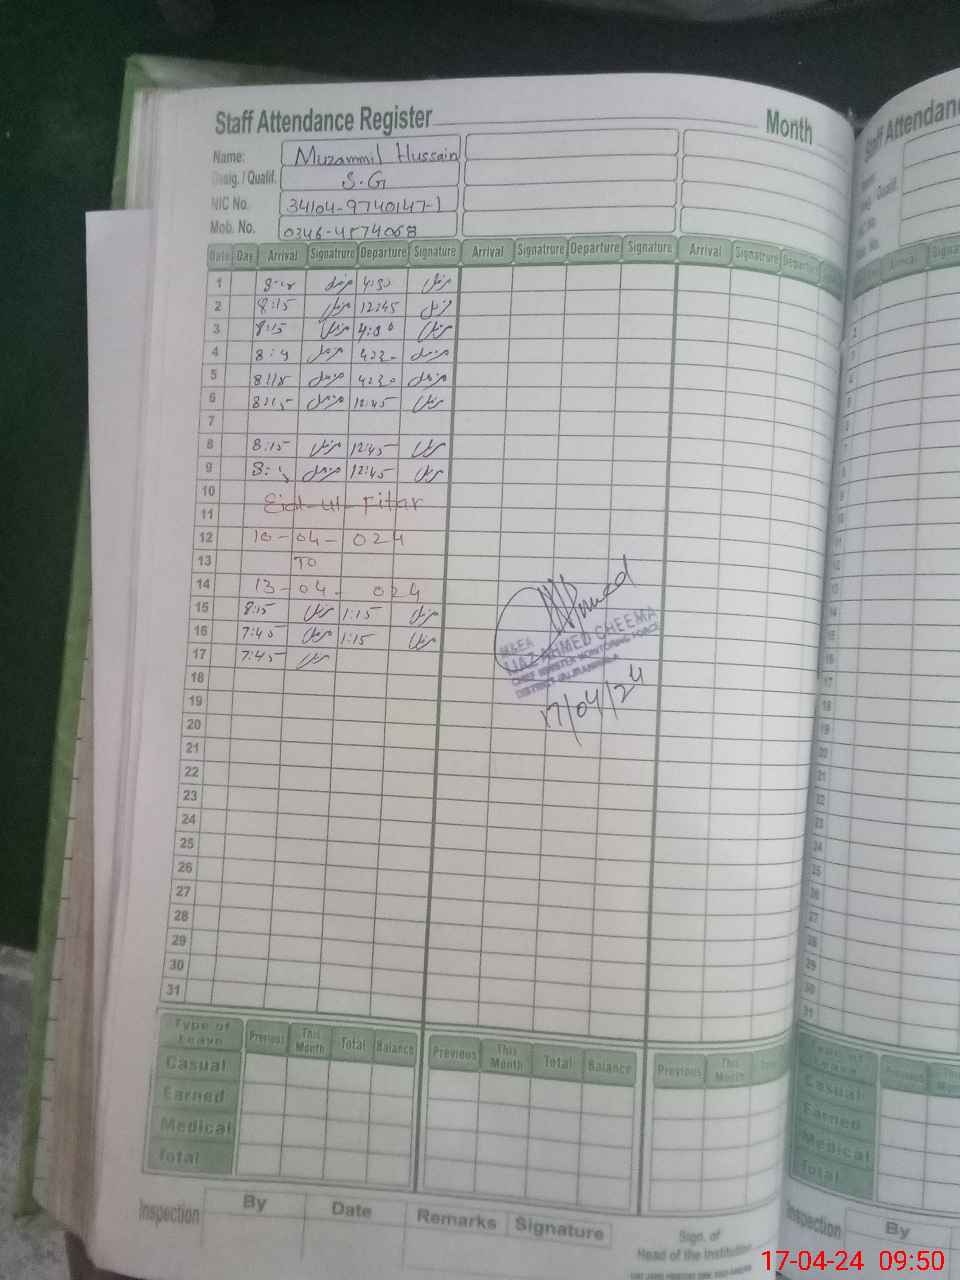 Staff Attendance Register Month
Name: Muzammil Hussain
Desig. / Qualif. S.G
NIC No. 34104-9740147-1
Mob. No.
Date Day Arrival Signatrure Departure Signature Arrival Signatrure Departure Signature Arrival Signatrure Departure
1 مزمل 4:30 مزمل
2 8:15 مزمل 12:45 مزمل
3 8:15 مزمل مزمل
4 مزمل مزمل
5 مزمل مزمل
6 8:15 مزمل 12:45 مزمل
7
8 8:15 مزمل 12:45 مزمل
9 مزمل 12:45 مزمل
10 Eid-ul-Fitar
11
12 10-04-024
13 TO
14 13-04-024
15 8:15 مزمل 1:15 مزمل
16 7:45 مزمل 1:15 مزمل
17 7:45 مزمل
M&EA
IJAZ AHMED CHEEMA
CHIEF MINISTER MONITORING FORCE
17/04/24
18
19
20
21
22
23
24
25
26
27
28
29
30
31
Type of Leave Previous This Month Total Balance Previous This Month Total Balance Previous This Month
Casual
Earned
Medical
Total
Inspection By Date Remarks Signature
Sign. of
Head of the Institution
Staff Attendance
Type of Leave Previous
Casual
Earned
Medical
Total
Inspection By
17-04-24 09:50